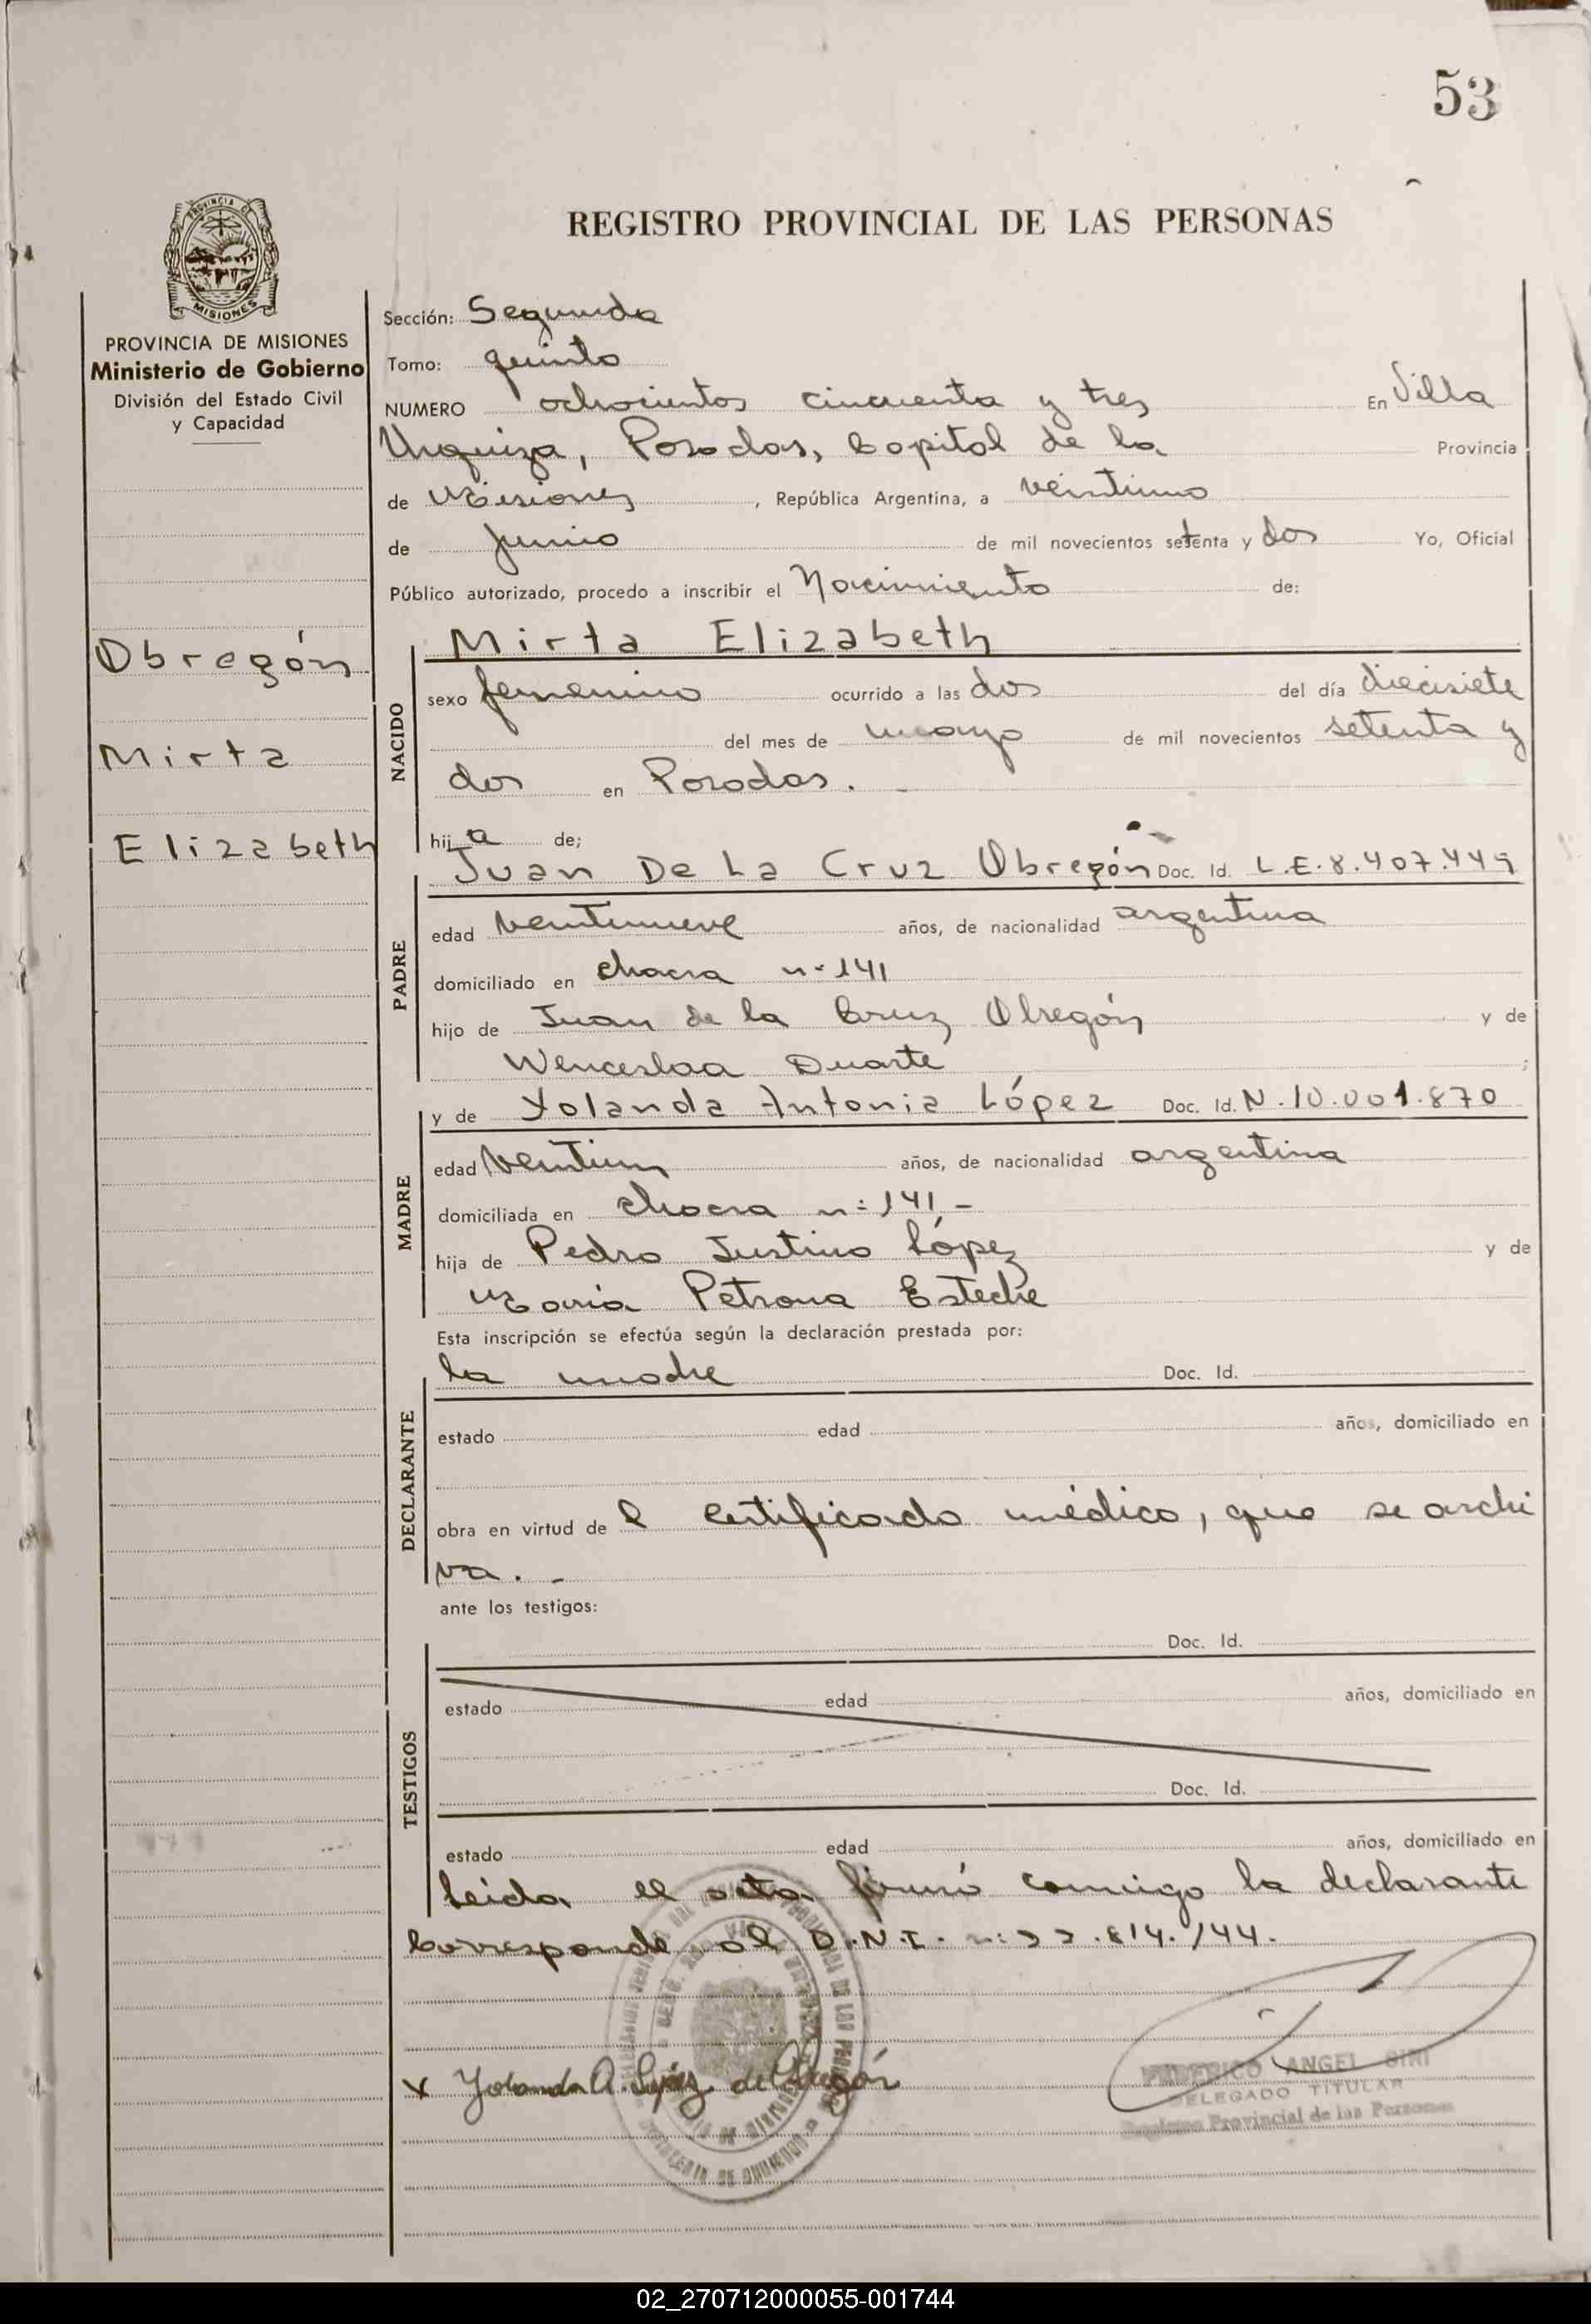 53
REGISTRO PROVINCIAL DE LAS PERSONAS
PROVINCIA DE MISIONES
Ministerio de Gobierno
División del Estado Civil
y Capacidad
Obregón
Mirta
Elizabeth
Sección: Segunda
Tomo: quinto
NUMERO ochocientos cincuenta y tres En Villa
Urquiza, Posadas, Capital de la Provincia
de Misiones, República Argentina, a veintiuno
de junio de mil novecientos setenta y dos Yo, Oficial
Público autorizado, procedo a inscribir el Nacimiento de:
NACIDO
Mirta Elizabeth
sexo femenino ocurrido a las dos del día diecisiete
del mes de mayo de mil novecientos setenta y
dos en Posadas.
hija de;
PADRE
Juan De La Cruz Obregón Doc. Id. L.E. 8.407.449
edad veintinueve años, de nacionalidad argentina
domiciliado en chacra nº 141
hijo de Juan de la Cruz Obregón y de
Wenceslaa Duarte ;
MADRE
y de Yolanda Antonia López Doc. Id. N. 10.001.870
edad veintiun años, de nacionalidad argentina
domiciliada en chacra nº 141 -
hija de Pedro Justino López y de
María Petrona Esteche
Esta inscripción se efectúa según la declaración prestada por:
DECLARANTE
la madre Doc. Id.
estado edad años, domiciliado en
obra en virtud de l certificado médico, que se archi
va. -
ante los testigos:
TESTIGOS
Doc. Id.
estado edad años, domiciliado en
Doc. Id.
estado edad años, domiciliado en
Leida el acta firmó conmigo la declarante
Corresponde al D.N.I. nº 22.814.144.
x Yolanda A. López de Obregón
FEDERICO ANGEL SIRI
DELEGADO TITULAR
Registro Provincial de las Personas
02_270712000055-001744